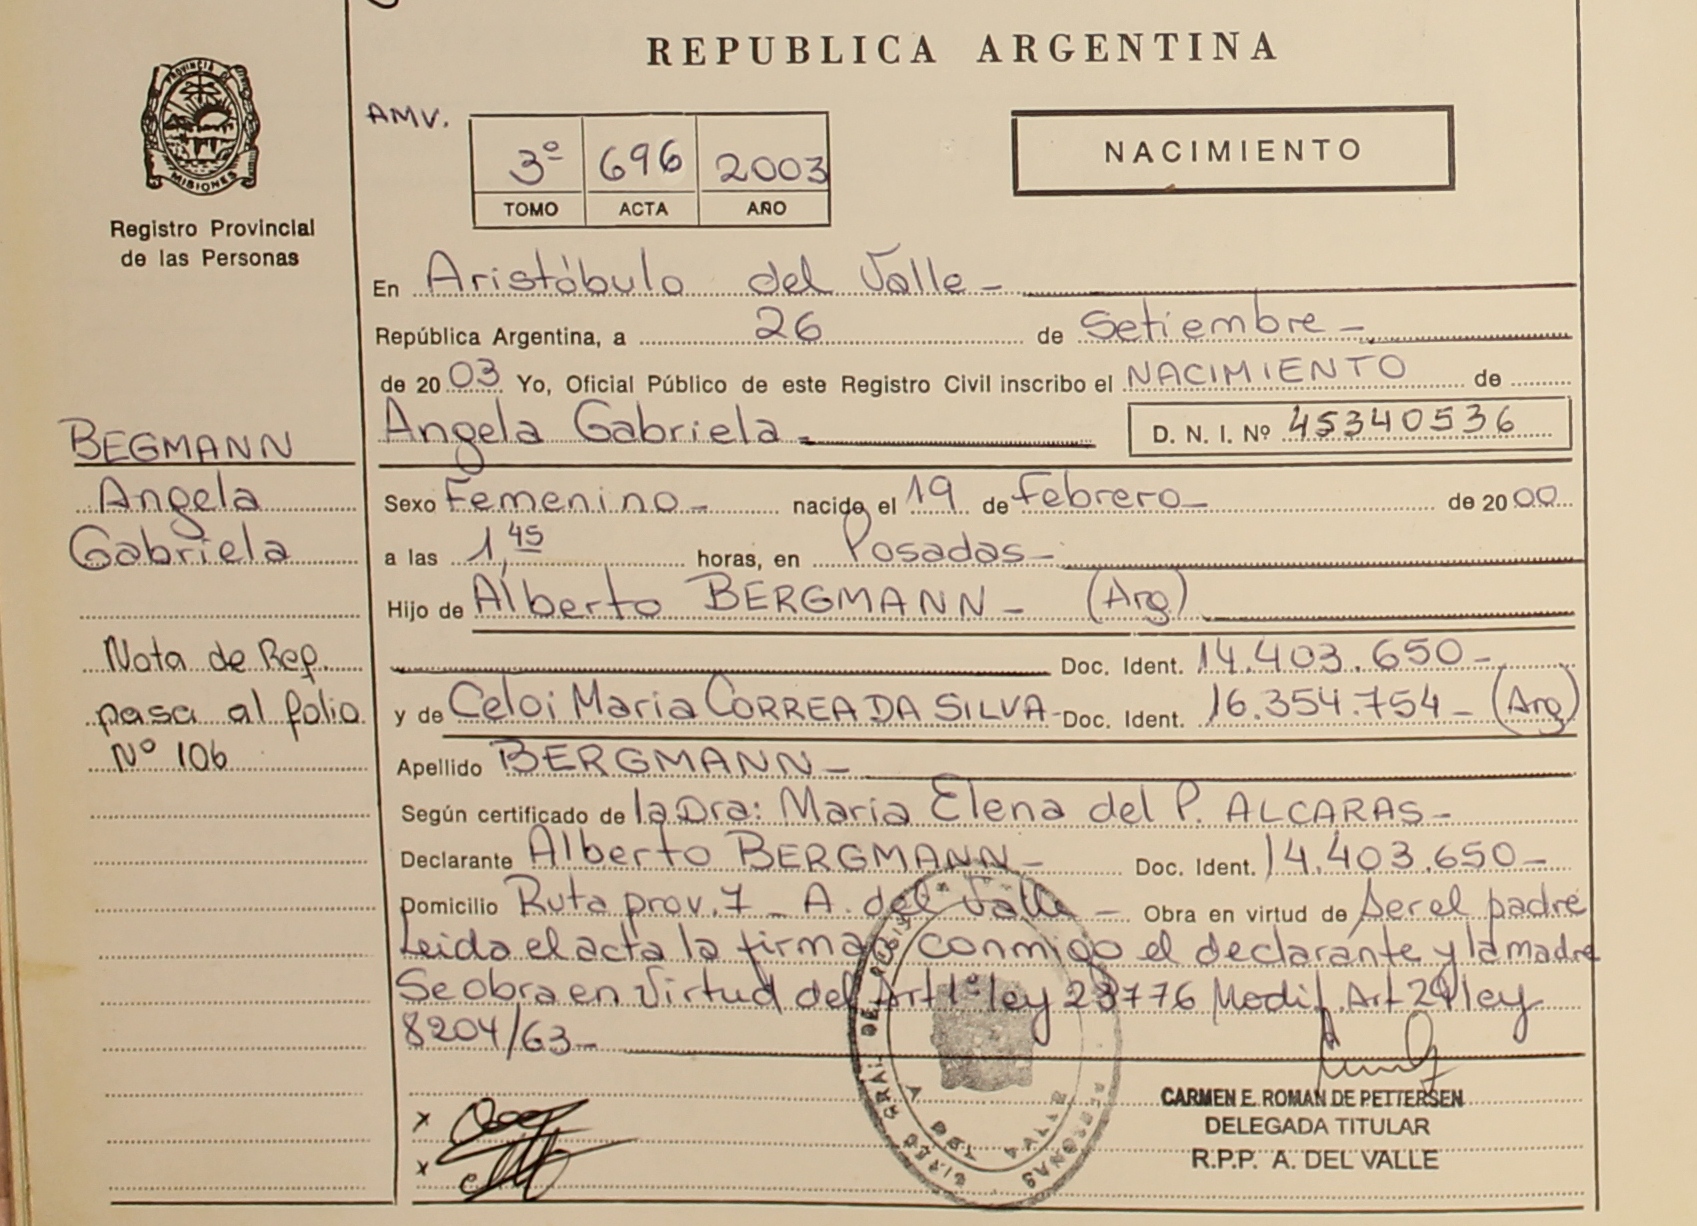 REPUBLICA ARGENTINA
PROVINCIA DE
MISIONES
Registro Provincial
de las Personas
AMV.
3º 696 2003
TOMO ACTA AÑO
NACIMIENTO
En Aristóbulo del Valle -
República Argentina, a 26 de Setiembre -
de 2003 Yo, Oficial Público de este Registro Civil inscribo el NACIMIENTO de
Angela Gabriela - D. N. I. Nº 45340536
Sexo Femenino - nacido el 19 de febrero - de 2000
a las 1,45 horas, en Posadas -
Hijo de Alberto BERGMANN - (Arg)
Doc. Ident. 14.403.650 -
y de Celoi Maria CORREA DA SILVA - Doc. Ident. 16.354.754 - (Arg)
Apellido BERGMANN -
Según certificado de la Dra: Maria Elena del P. ALCARAS -
Declarante Alberto BERGMANN - Doc. Ident. 14.403.650 -
Domicilio Ruta prov. 7 - A. del Valle - Obra en virtud de ser el padre
Leida el acta la firman conmigo el declarante y la madre
Se obra en virtud del Art 1º ley 23776 Modif. Art 29 ley
8204/63 -
BEGMANN
Angela
Gabriela
Nota de Rep.
pasa al folio
Nº 106
x
x
CARMEN E. ROMAN DE PETTERSEN
DELEGADA TITULAR
R.P.P. A. DEL VALLE
A DEL VALLE